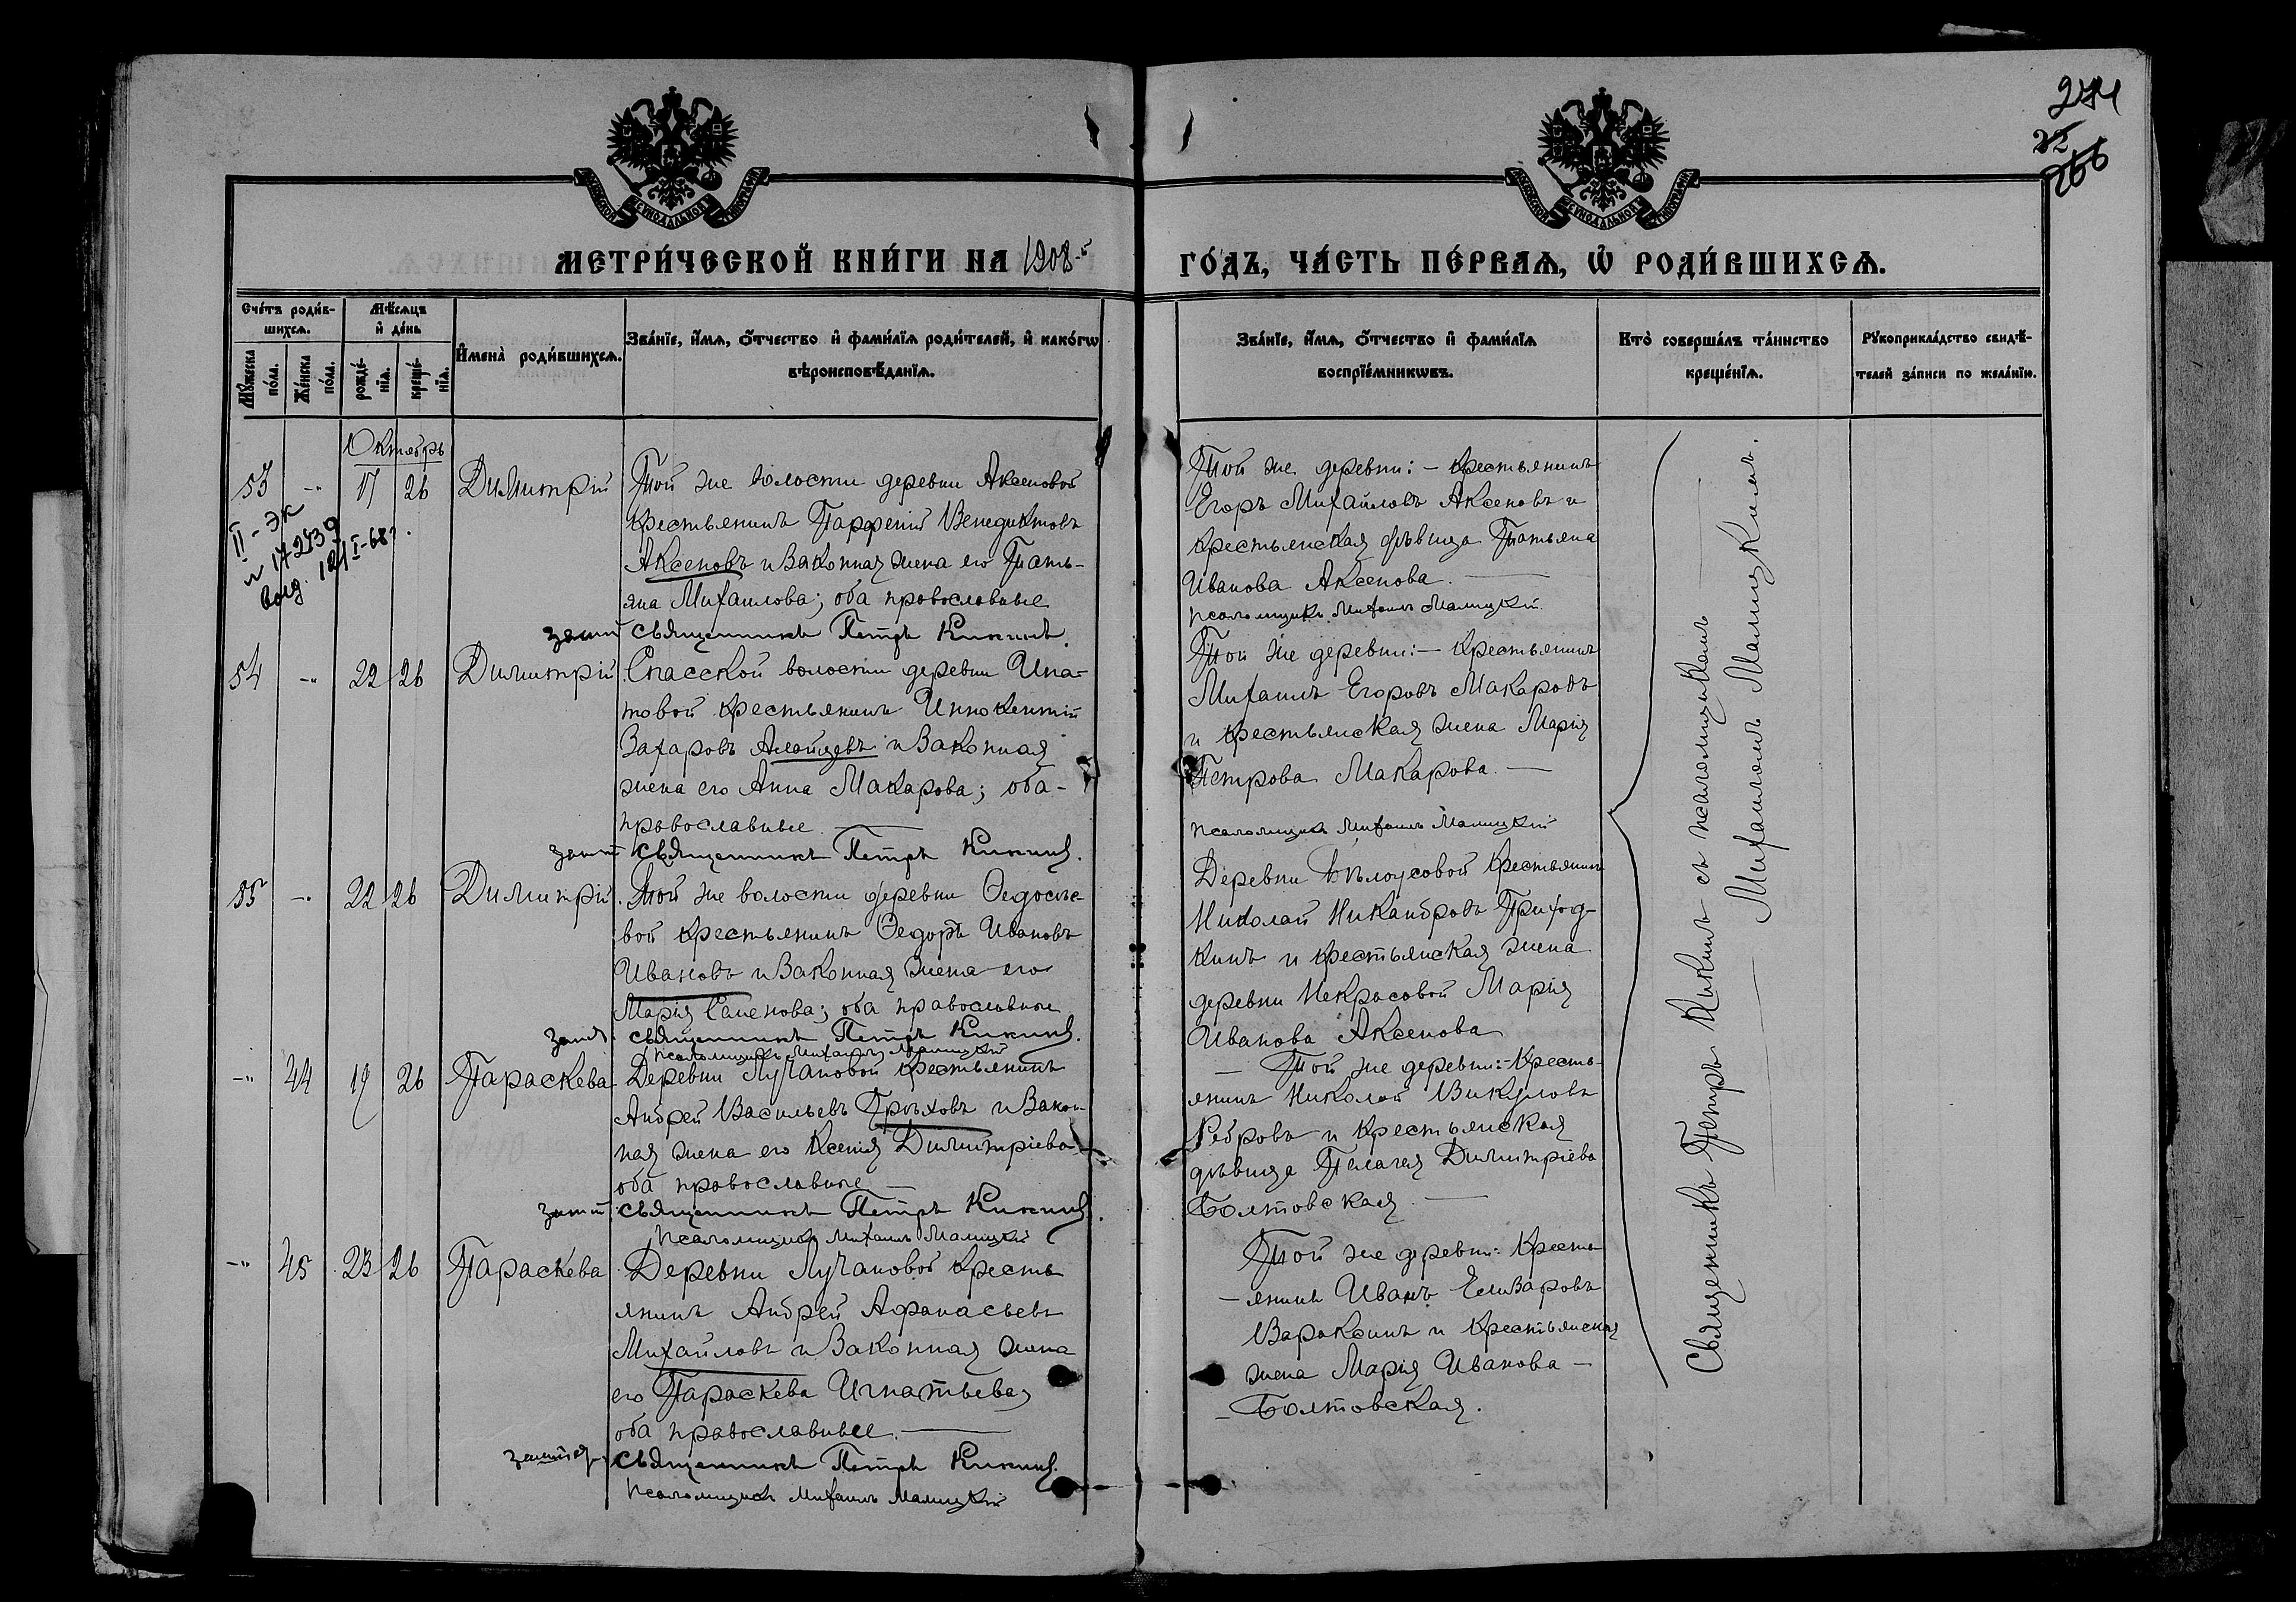 274
22
266
МЕТРИ́ЧЕСКОЙ КНИ́ГИ НА 1908-й ГО́ДЪ, ЧА́СТЬ ПЕ́РВАѦ, Ѡ҆ РОДИ́ВШИХСѦ.
Сче́тъ роди́в-
шихсѧ.
Мꙋ́жеска
по́ла.
Же́нска
по́ла.
Мѣ́сѧцъ
и҆ де́нь
рожде́-
нїѧ.
креще́-
нїѧ.
И҆мена̀ роди́вшихсѧ.
Зва́нїе, и҆́мѧ, ѻ҆́тчество и҆ фами́лїѧ роди́телей, и҆ како́гѡ
вѣроисповѣ́данїѧ.
Зва́нїе, и҆́мѧ, ѻ҆́тчество и҆ фами́лїѧ
воспрїе́мникѡвъ.
Кто̀ соверша́лъ та́инство
креще́нїѧ.
Рꙋкоприкла́дство свидѣ́-
телей за́писи по жела́нїю.
Октябрь
53 -„- 17 26 Димитрій
Той же волости деревни Аксеновой
крестьянинъ Парфеній Венедиктовъ
Аксеновъ и законная жена его Тать-
яна Михаилова; оба православные
священникъ Петръ Кикинъ.
II - ЭК
Той же деревни: – крестьянинъ
Егоръ Михайловъ Аксеновъ и
крестьянская дѣвица Татьяна
Иванова Аксенова.
Псаломщикъ Михаилъ Малицкій.
54 -„- 22 26 Димитрій
Спасской волости деревни Ипа-
товой крестьянинъ Иннокентій
Захаровъ и законная
жена его Анна Макарова; оба-
православные.
священникъ Петръ Кикинъ.
Той же деревни: – крестьянинъ
Михаилъ Егоровъ Макаровъ
и крестьянская жена Марія
Петрова Макарова. —
Псаломщикъ Михаилъ Малицкій
55 -„- 22 26 Димитрій
Той же волости деревни Ѳедосѣе-
вой крестьянинъ Ѳедоръ Ивановъ
Ивановъ и законная жена его
Марія Семенова; оба православные
священникъ Петръ Кикинъ.
Псаломщикъ Михаилъ Малицкій
Деревни Бѣлоусовой крестьянинъ
Николай Никандровъ Приход-
кинъ и крестьянская жена
деревни Некрасовой Марія
Иванова Аксенова
-„- 44 19 26 Параскева
Деревни Лучановой крестьянинъ
Андрей Васильевъ Грѣховъ и закон-
ная жена его Ксенія Димитріева
оба православные —
священникъ Петръ Кикинъ.
Псаломщикъ Михаилъ Малицкій
— Той же деревни: – Кресть-
янинъ Николай Викуловъ
Ребровъ и крестьянская
дѣвица Пелагея Димитріева
Болтовская. —
-„- 45 23 26 Параскева
Деревни Лучановой Кресть
янинъ Андрей Афанасьевъ
Михайловъ и законная жена
его Параскева Игнатьева;
оба православные. —
священникъ Петръ Кикинъ.
Псаломщикъ Михаилъ Малицкій
Той же деревни: Кресть
– янинъ Иванъ Елизаровъ
Вараксинъ и Крестьянская
жена Марія Иванова –
– Болтовская.
Священникъ Петръ Кикинъ съ псаломщикомъ
— Михаиломъ Малицкимъ.